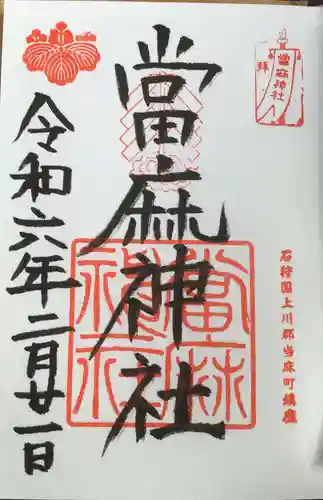 當麻神社
拝
石狩国上川郡当麻町鎮座
當麻神社
當麻神社
令和六年二月廿一日